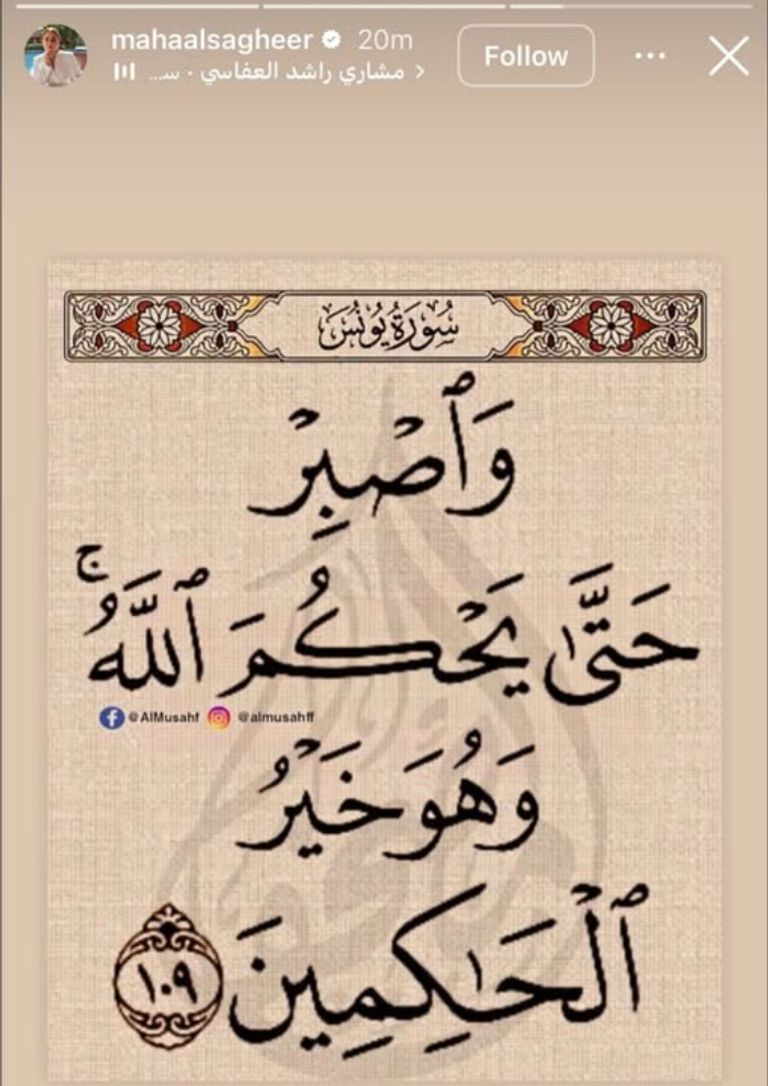 mahaalsagheer 20m
Follow
مشاري راشد العفاسي · سـ...
سُورَةُ يُونُسَ
وَٱصْبِرْ
حَتَّىٰ يَحْكُمَ ٱللَّهُ ۚ
@AlMusahf @almusahff
وَهُوَ خَيْرُ
ٱلْحَـٰكِمِينَ ١٠٩